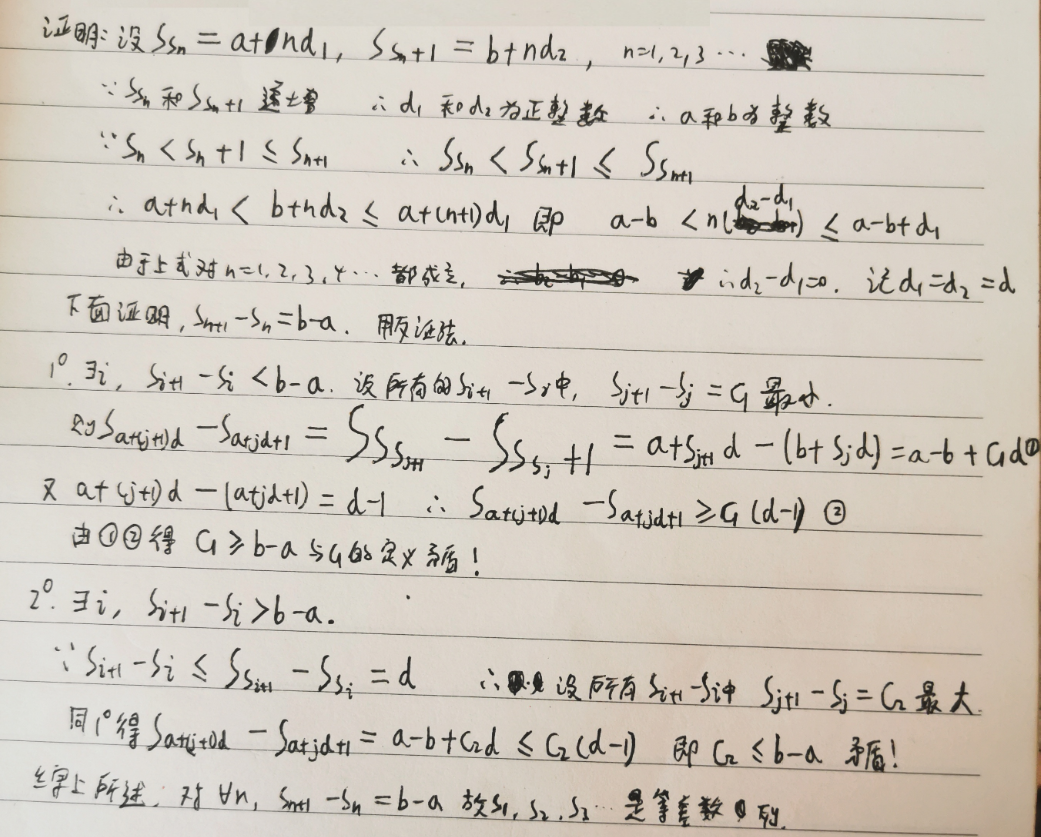 证明: 设 S_{S_n} = a+nd₁, S_{S_n+1} = b+nd₂, n=1,2,3 …
∵ S_{S_n} 和 S_{S_n+1} 递增 ∴ d₁ 和 d₂ 为正整数 ∴ a和b为整数
∵ S_n < S_n+1 ≤ S_{n+1} ∴ S_{S_n} < S_{S_n+1} ≤ S_{S_{n+1}}
∴ a+nd₁ < b+nd₂ ≤ a+(n+1)d₁ 即 a-b < n(d₂-d₁) ≤ a-b+d₁
由于上式对 n=1,2,3,4 … 都成立, ∴ d₂-d₁=0. 记 d₁=d₂=d
下面证明, S_{n+1}-S_n=b-a. 用反证法.
1°. ∃i, S_{i+1}-S_i<b-a. 设所有的 S_{i+1}-S_i中, S_{j+1}-S_j=C₁ 最小.
则 S_{a+(j+1)d} - S_{a+jd+1} = S_{S_{S_{j+1}}} - S_{S_{S_j}+1} = a+S_{j+1}d-(b+S_jd)=a-b+C₁d①
又 a+(j+1)d-(a+jd+1)=d-1 ∴ S_{a+(j+1)d} - S_{a+jd+1} ≥ C₁(d-1) ②
由①②得 C₁≥b-a 与C₁的定义矛盾!
2°. ∃i, S_{i+1}-S_i>b-a.
∵ S_{i+1}-S_i ≤ S_{S_{i+1}} - S_{S_i} = d ∴ 设所有 S_{i+1}-S_i中 S_{j+1}-S_j=C₂ 最大.
同1°得 S_{a+(j+1)d} - S_{a+jd+1} = a-b+C₂d ≤ C₂(d-1) 即 C₂≤b-a 矛盾!
综上所述, 对∀n, S_{n+1}-S_n=b-a 故S₁,S₂,S₃… 是等差数列.